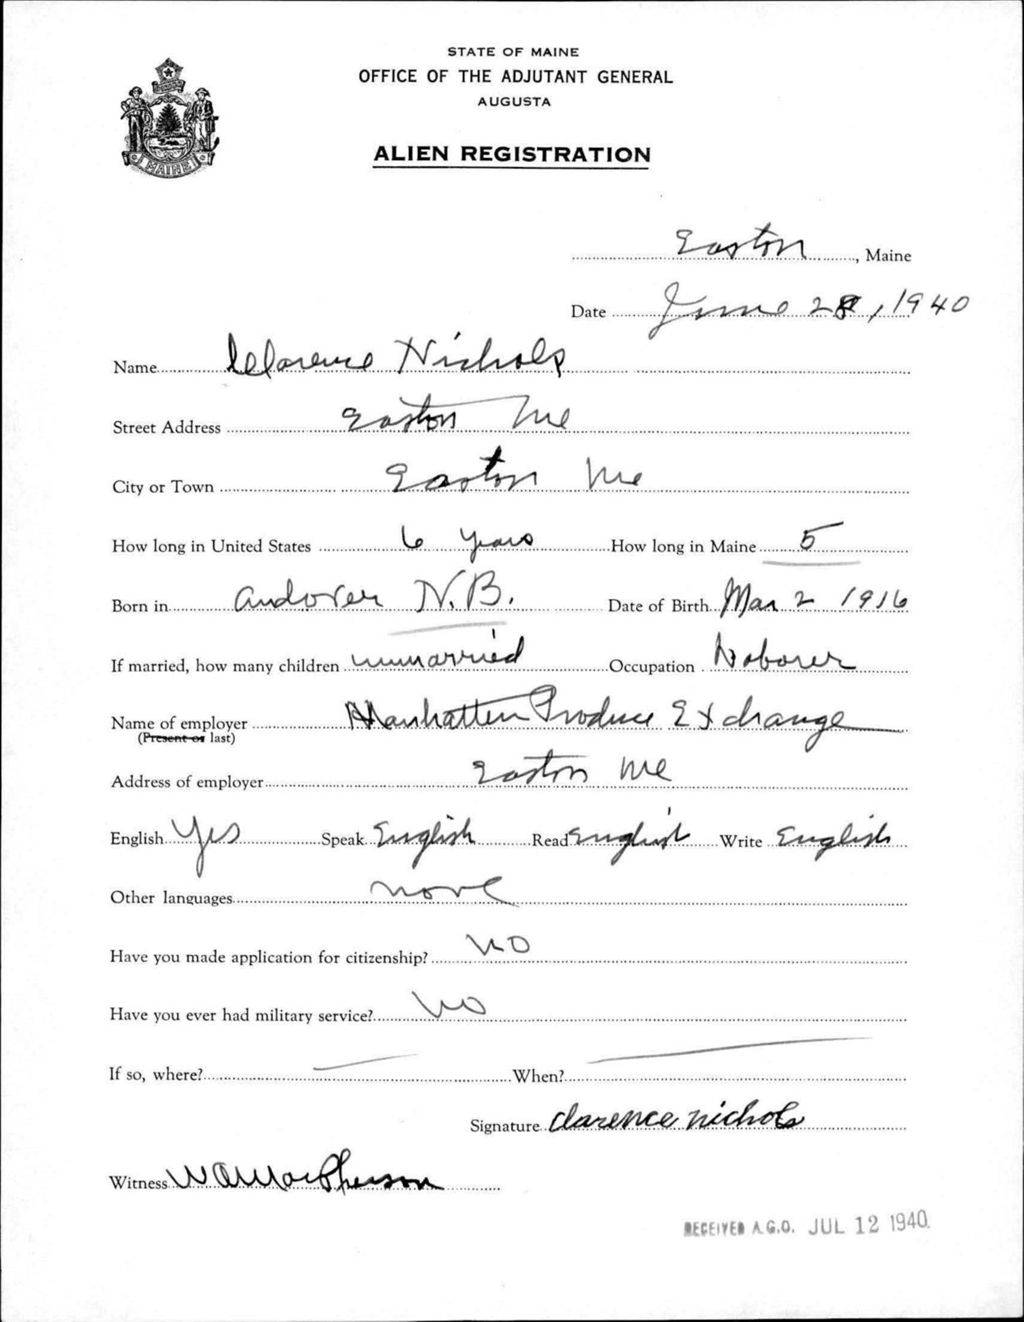 STATE OF MAINE
OFFICE OF THE ADJUTANT GENERAL
AUGUSTA
ALIEN REGISTRATION
MAINE
Easton, Maine
Date June 28, 1940
Name Clarence Nichols
Street Address Easton Me
City or Town Easton Me
How long in United States 6 years How long in Maine 5
Born in Andover N.B. Date of Birth Mar 2 1916
If married, how many children unmarried Occupation Laborer
Name of employer Manhatten Produce Exchange
(Present or last)
Address of employer Easton Me
English Yes Speak English Read English Write English
Other languages none
Have you made application for citizenship? no
Have you ever had military service? no
If so, where? When?
Signature Clarence Nichols
Witness W A MacPherson
RECEIVED A.G.O. JUL 12 1940